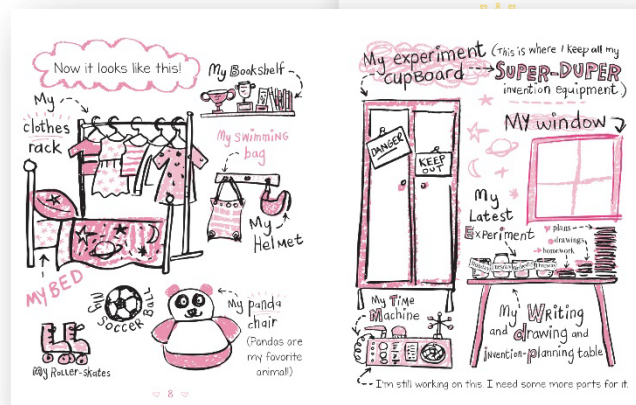 Now it looks like this!
My Bookshelf
My
clothes
rack
My swimming
bag
My
Helmet
MY BED
My SOCCER BALL
My panda
chair
(Pandas are
my favorite
animal!)
My Roller-skates
8
My experiment
cupBoard
(This is where I keep all my
SUPER-DUPER
invention equipment.)
DANGER
KEEP
OUT
MY window
My
Latest
Experiment
plans
drawings
homework
My Time
Machine
My Writing
and drawing and
invention-planning table
I'm still working on this. I need some more parts for it.